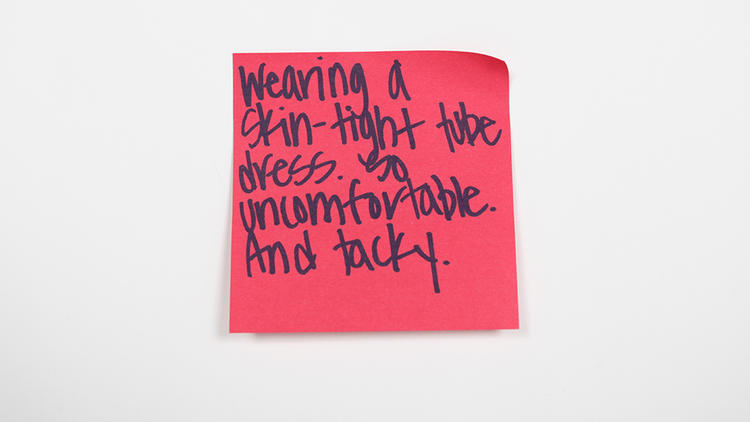 Wearing a
skin-tight tube
dress. So
uncomfortable.
And tacky.